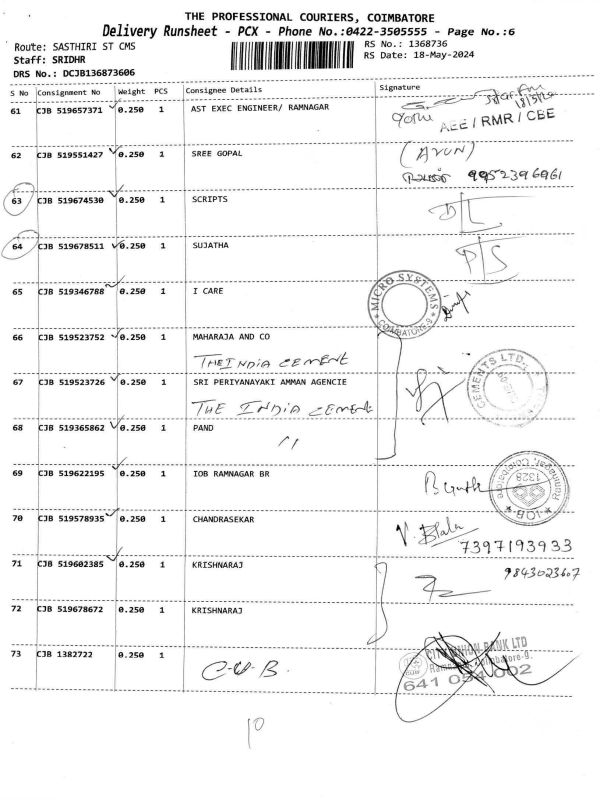 THE PROFESSIONAL COURIERS, COIMBATORE
Delivery Runsheet - PCX - Phone No.:0422-3505555 - Page No.:6
Route: SASTHIRI ST CMS
RS No.: 1368736
Staff: SRIDHR
RS Date: 18-May-2024
DRS No.: DCJB136873606
S No Consignment No Weight PCS Consignee Details Signature
61 CJB 519657371 0.250 1 AST EXEC ENGINEER/ RAMNAGAR
AEE / RMR / CBE
62 CJB 519551427 0.250 1 SREE GOPAL (ARUN)
9952396961
63 CJB 519674530 0.250 1 SCRIPTS
64 CJB 519678511 0.250 1 SUJATHA
65 CJB 519346788 0.250 1 I CARE
MICRO SYSTEMS
COIMBATORE-9
66 CJB 519523752 0.250 1 MAHARAJA AND CO
THE INDIA CEMENT
67 CJB 519523726 0.250 1 SRI PERIYANAYAKI AMMAN AGENCIE
CEMENTS LTD.
THE INDIA CEMENT
68 CJB 519365862 0.250 1 PAND
〃
69 CJB 519622195 0.250 1 IOB RAMNAGAR BR
Ramnagar, Coimbatore
1328
I.O.B
70 CJB 519578935 0.250 1 CHANDRASEKAR V. Bala
7397193933
71 CJB 519602385 0.250 1 KRISHNARAJ 9843023607
72 CJB 519678672 0.250 1 KRISHNARAJ
73 CJB 1382722 0.250 1
C.U.B.
CITY UNION BANK LTD
Ramnagar, Coimbatore-9.
641 054 002
10